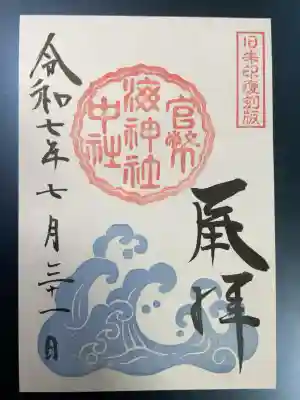 旧朱印復刻版
奉拝
官幣
海神社
中社
令和七年七月三十一日